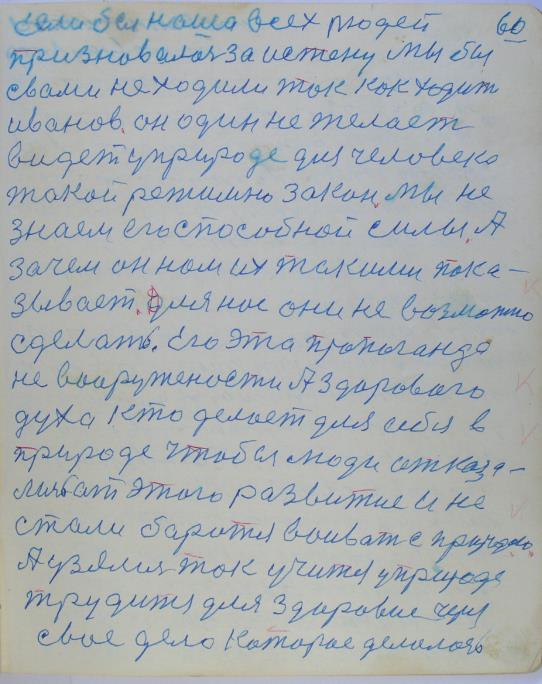 если был наша всех людей 60
признавалося за истену мы бы
свами неходили так как ходит
иванов. он один не желает
видет у природе для человека
такой режимно закон, мы не
знаем его способной силы. А
зачем он ном их такими пока-
зывает. Для нас они не возможно
сделать. Его эта пропоганда
не вооружености А здорового
духа Кто делает для себя в
природе чтобы люди отказа-
лись от этого развитие и не
стали баротся воиват с природою
А узялися так учится у природе
трудится для здоровие через
свое дело которое делалось